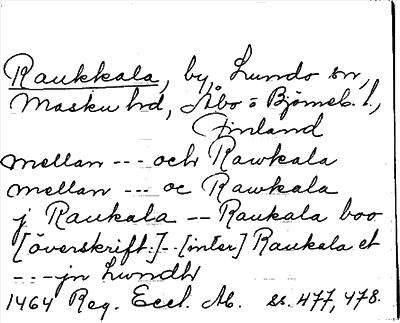 Raukkala, by, Lundo sn,
Masku hd, Åbo o Björneb. l.,
Finland
mellan --- och Rawkala
mellan --- oc Rawkala
j Raukala -- Raukala boo
[överskrift:] -- [inter] Raukala et
--- jn Lundh
1464 Reg. Eccl. Ab. ss. 477, 478.